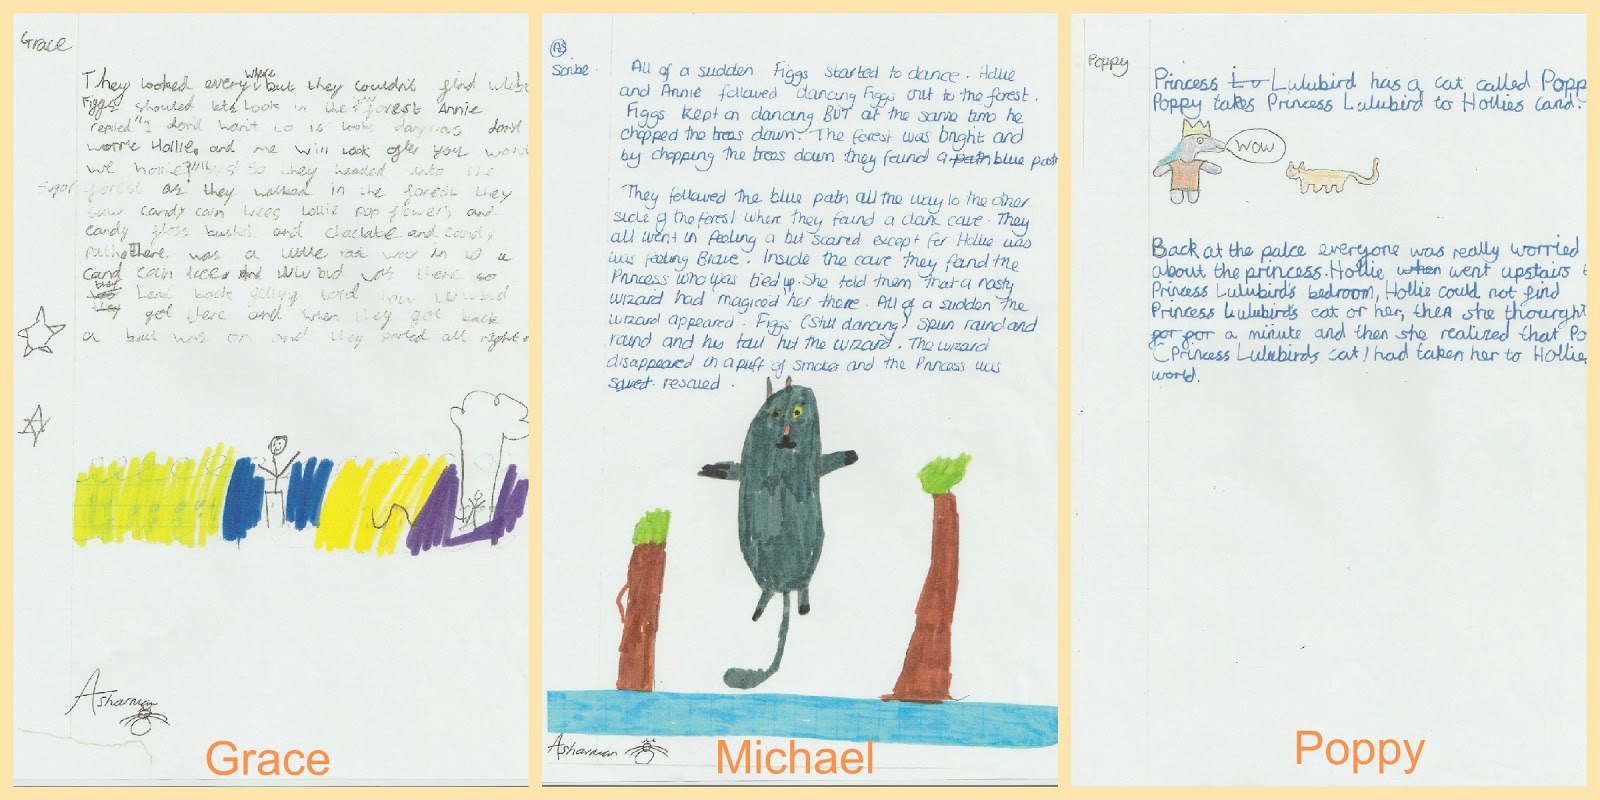 Grace
They looked everywhere but they couldn't find
Figgs shouted lets look in the forest Annie
replied "I don't want to it looks dangrous don't
worrie Hollie and me will look after you wont
we hollie?" so they headed into the
sugar forest as they walked in the forest they
saw candy cain trees lollie pop flowers and
candy floss bushes and choclate and candy
path. There was a little
cand cain tree and lulubird was there so
head back
got there and when they got back
a ball was on and they parted all night
Asharman
Grace
AS
Scribe.
All of a sudden Figgs started to dance. Hollie
and Annie followed dancing Figgs out to the forest.
Figgs kept on dancing BUT at the same time he
chopped the trees down. The forest was bright and
by chopping the trees down they found a path blue path
They followed the blue path all the way to the other
side of the forest where they found a dark cave. They
all went in feeling a bit scared except for Hollie was
was feeling Brave. Inside the cave they found the
Princess who was tied up. She told them that a nasty
wizard had magiced her there. All of a sudden the
wizard appeared. Figgs (still dancing) spun round and
round and his tail hit the wizard. The wizard
disappeared in a puff of smoke and the Princess was
saved. rescued.
Asharman
Michael
Poppy
Princess Lu Lulubird has a cat called Popp
Poppy takes Princess Lulubird to Hollies land.
WOW
Back at the palce everyone was really worried
about the princess. Hollie when went upstairs t
Princess Lulubird's bedroom, Hollie could not find
Princess Lulubirds cat or her, then she thourght
for for a minute and then she realized that Po
(Princess Lulubirds cat) had taken her to Hollies
world.
Poppy